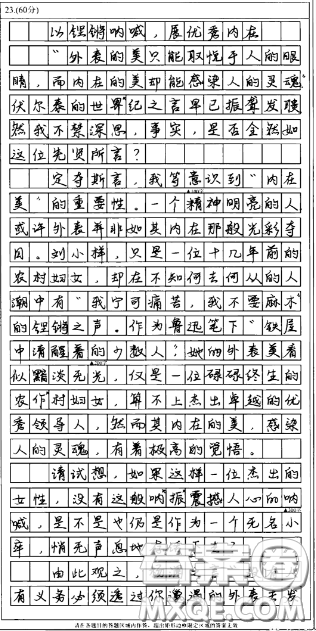 23.(60分)
以铿锵呐喊，展优秀内在
"外表的美只能取悦于人的眼
睛，而内在的美却能感染人的灵魂"
伏尔泰的世界纪之言早已振聋发聩
然我不禁深思，事实，是否全然如
这位先贤所言？
定夺斯言，我等意识到"内在
美"的重要性。一个精神明亮的人
或许外表并非如其内在那般光彩夺
目。刘小样，只是一位十几年前的
农村妇女，却在不知何去何从的人
潮中有"我宁可痛苦，我不要麻木"
的铿锵之声。作为鲁迅笔下"铁屋
中清醒着的少数人"，她的外表美看
似黯淡无光，仅是一位碌碌终生的
农作村妇女，算不上杰出卓越的优
秀领导人，然而其内在的美，感染
人的灵魂，有着极高的觉悟。
请试想，如果这样一位杰出的
女性，没有这般呐振震撼人心的呐
喊，是不是也仍是作为一个无名小
卒，悄无声息地
由此观之，
有义务必须透过你 的外表去发
答案圈